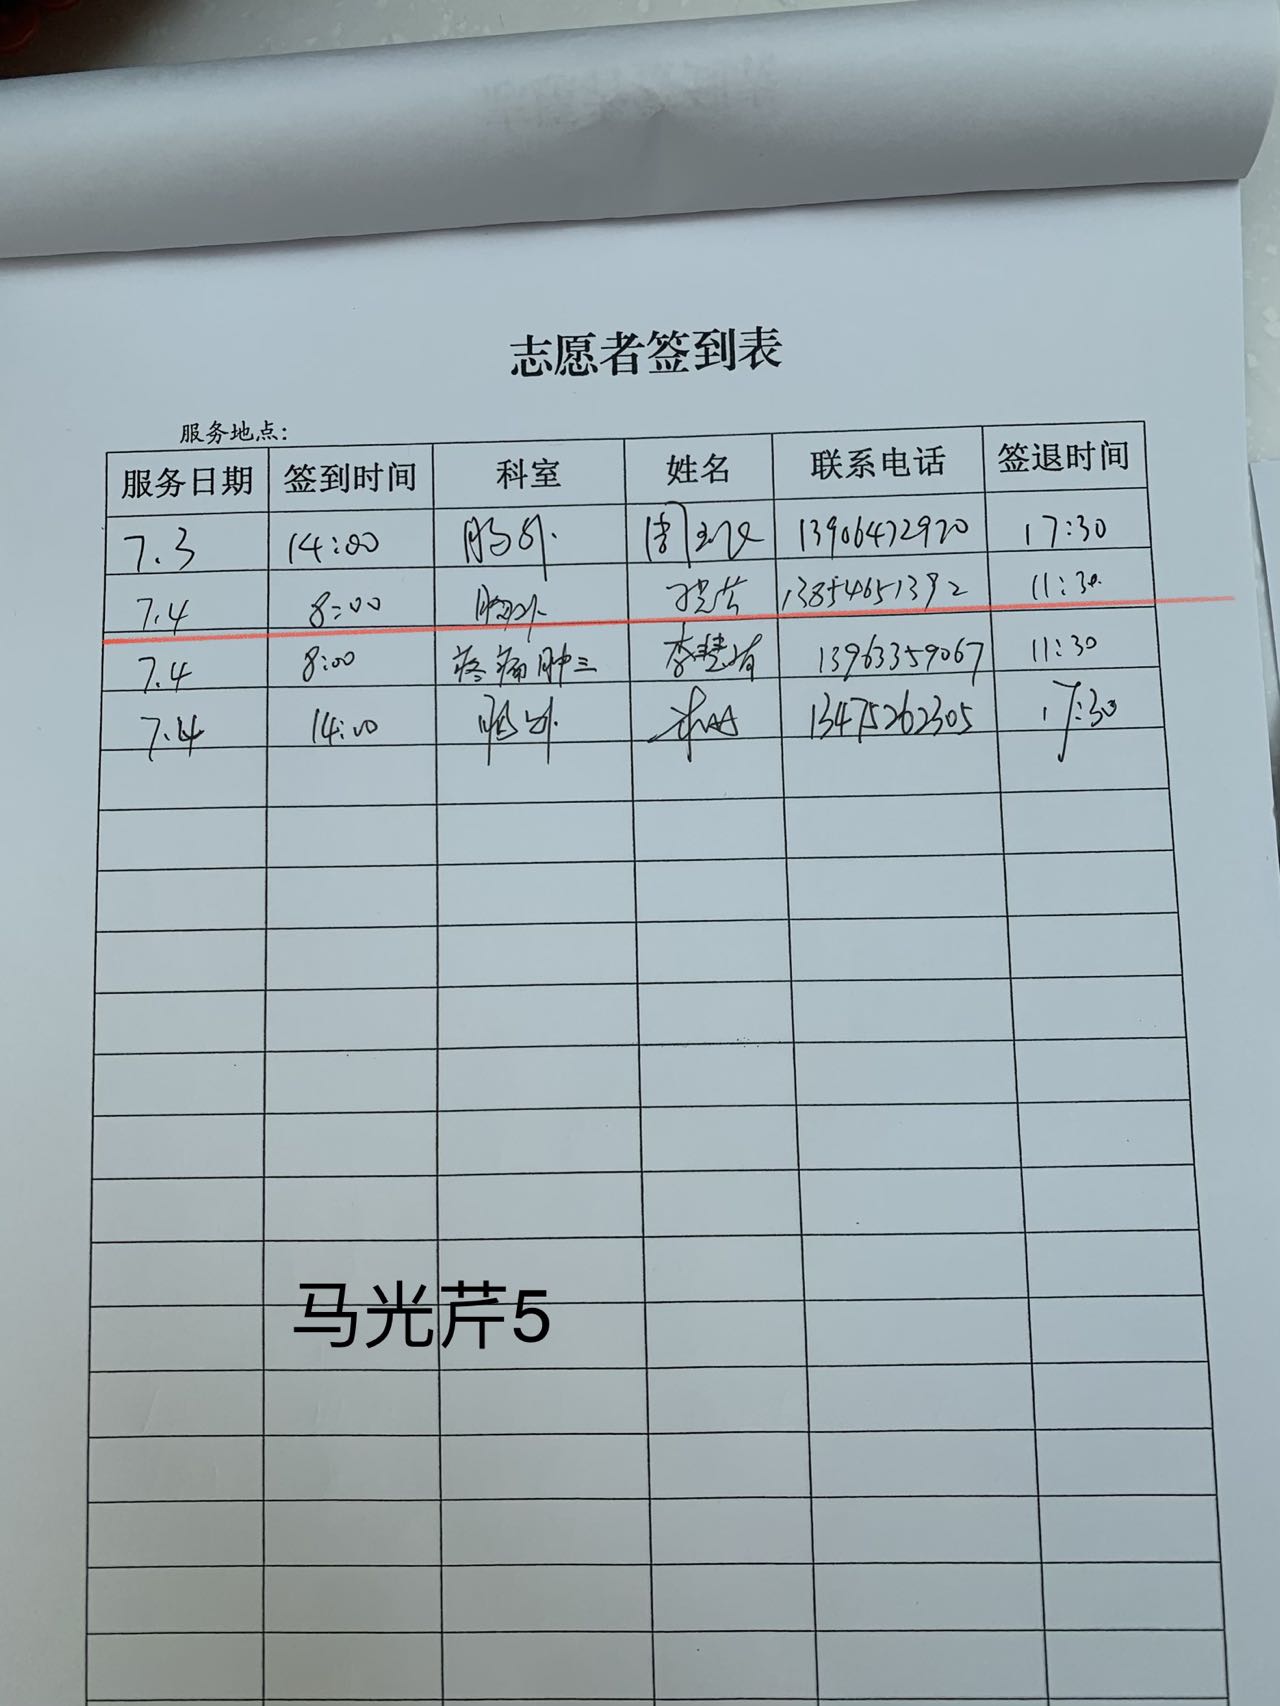 志愿者签到表
服务地点:
服务日期 签到时间 科室 姓名 联系电话 签退时间
7.3 14:00 13906472970 17:30
7.4 8:00 胸外 13854651392 11:30
7.4 8:00 疼痛肿三 李慧 13963359067 11:30
7.4 14:00 13475262305 17:30
马光芹5